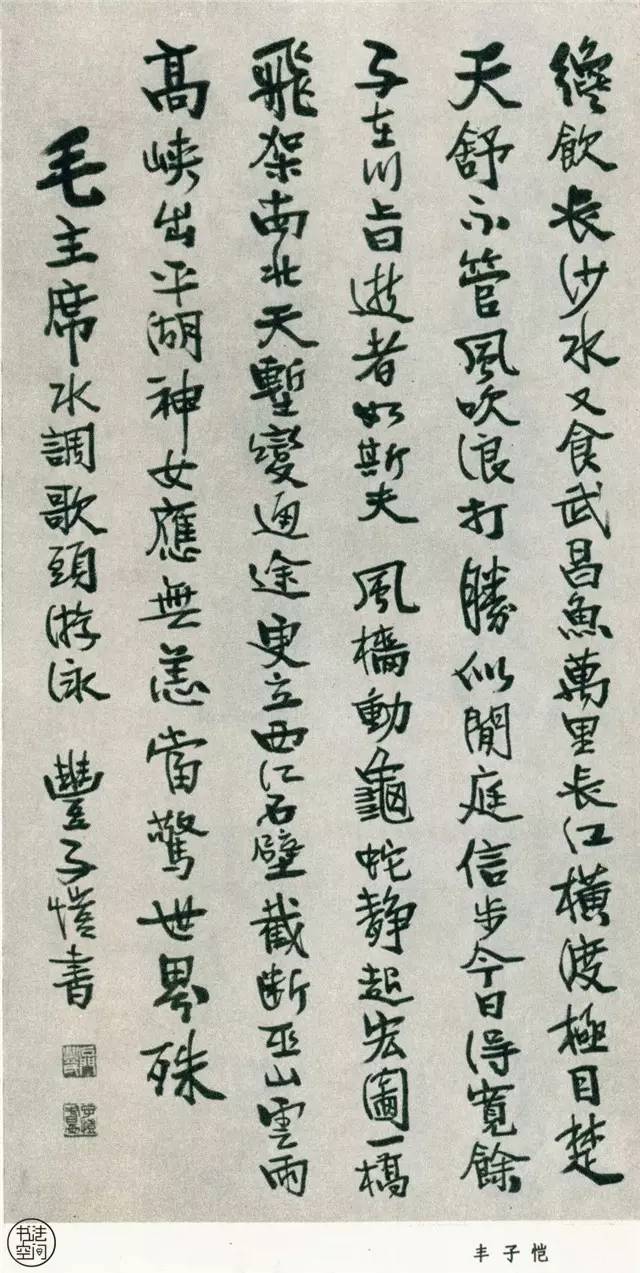 纔飲長沙水又食武昌魚萬里長江橫渡極目楚
天舒不管風吹浪打勝似閒庭信步今日得寬餘
子在川上曰逝者如斯夫 風檣動龜蛇静起宏圖一橋
飛架南北天塹變通途更立西江石壁截断巫山雲雨
高峡出平湖神女應無恙當驚世界殊
毛主席水調歌頭游泳 豐子愷書
书法
空间
丰子恺